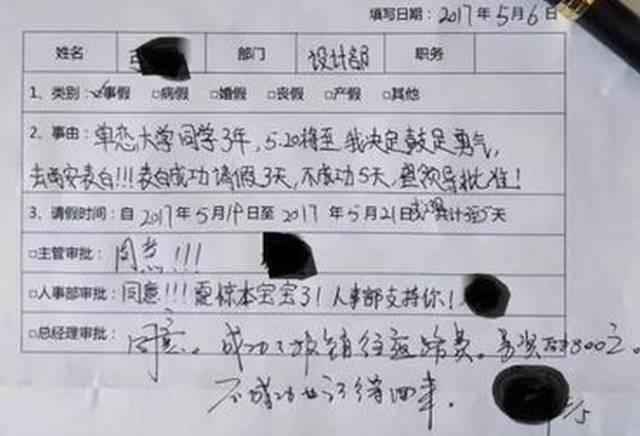 填写日期：2017年5月6日
姓名 部门 设计部 职务
1、类别：☑事假 □病假 □婚假 □丧假 □产假 □其他
2、事由：单恋大学同学3年，5.20将至我决定鼓足勇气，
去西安表白!!!表白成功请假3天，不成功5天，望领导批准！
3、请假时间：自2017年5月19日至2017年5月21日或 共计3至5天
□主管审批：同意!!!
□人事部审批：同意!!!震惊本宝宝了！人事部支持你！
□总经理审批：同意。成功了报销往返路费。另奖 800元。
不成功也记得回来。
5/5